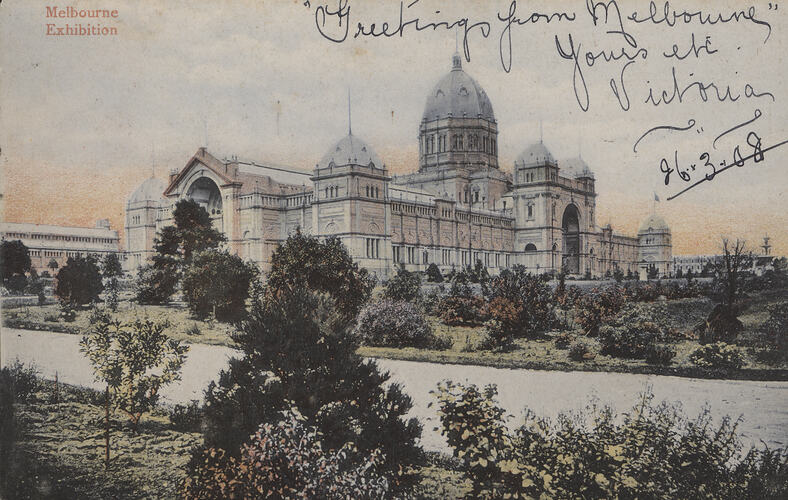 Melbourne
Exhibition
"Greetings from Melbourne"
Yours etc.
Victoria
26.3.08